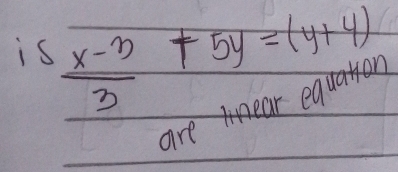 is x-3/3 + 5y = (y+4)
are linear equation